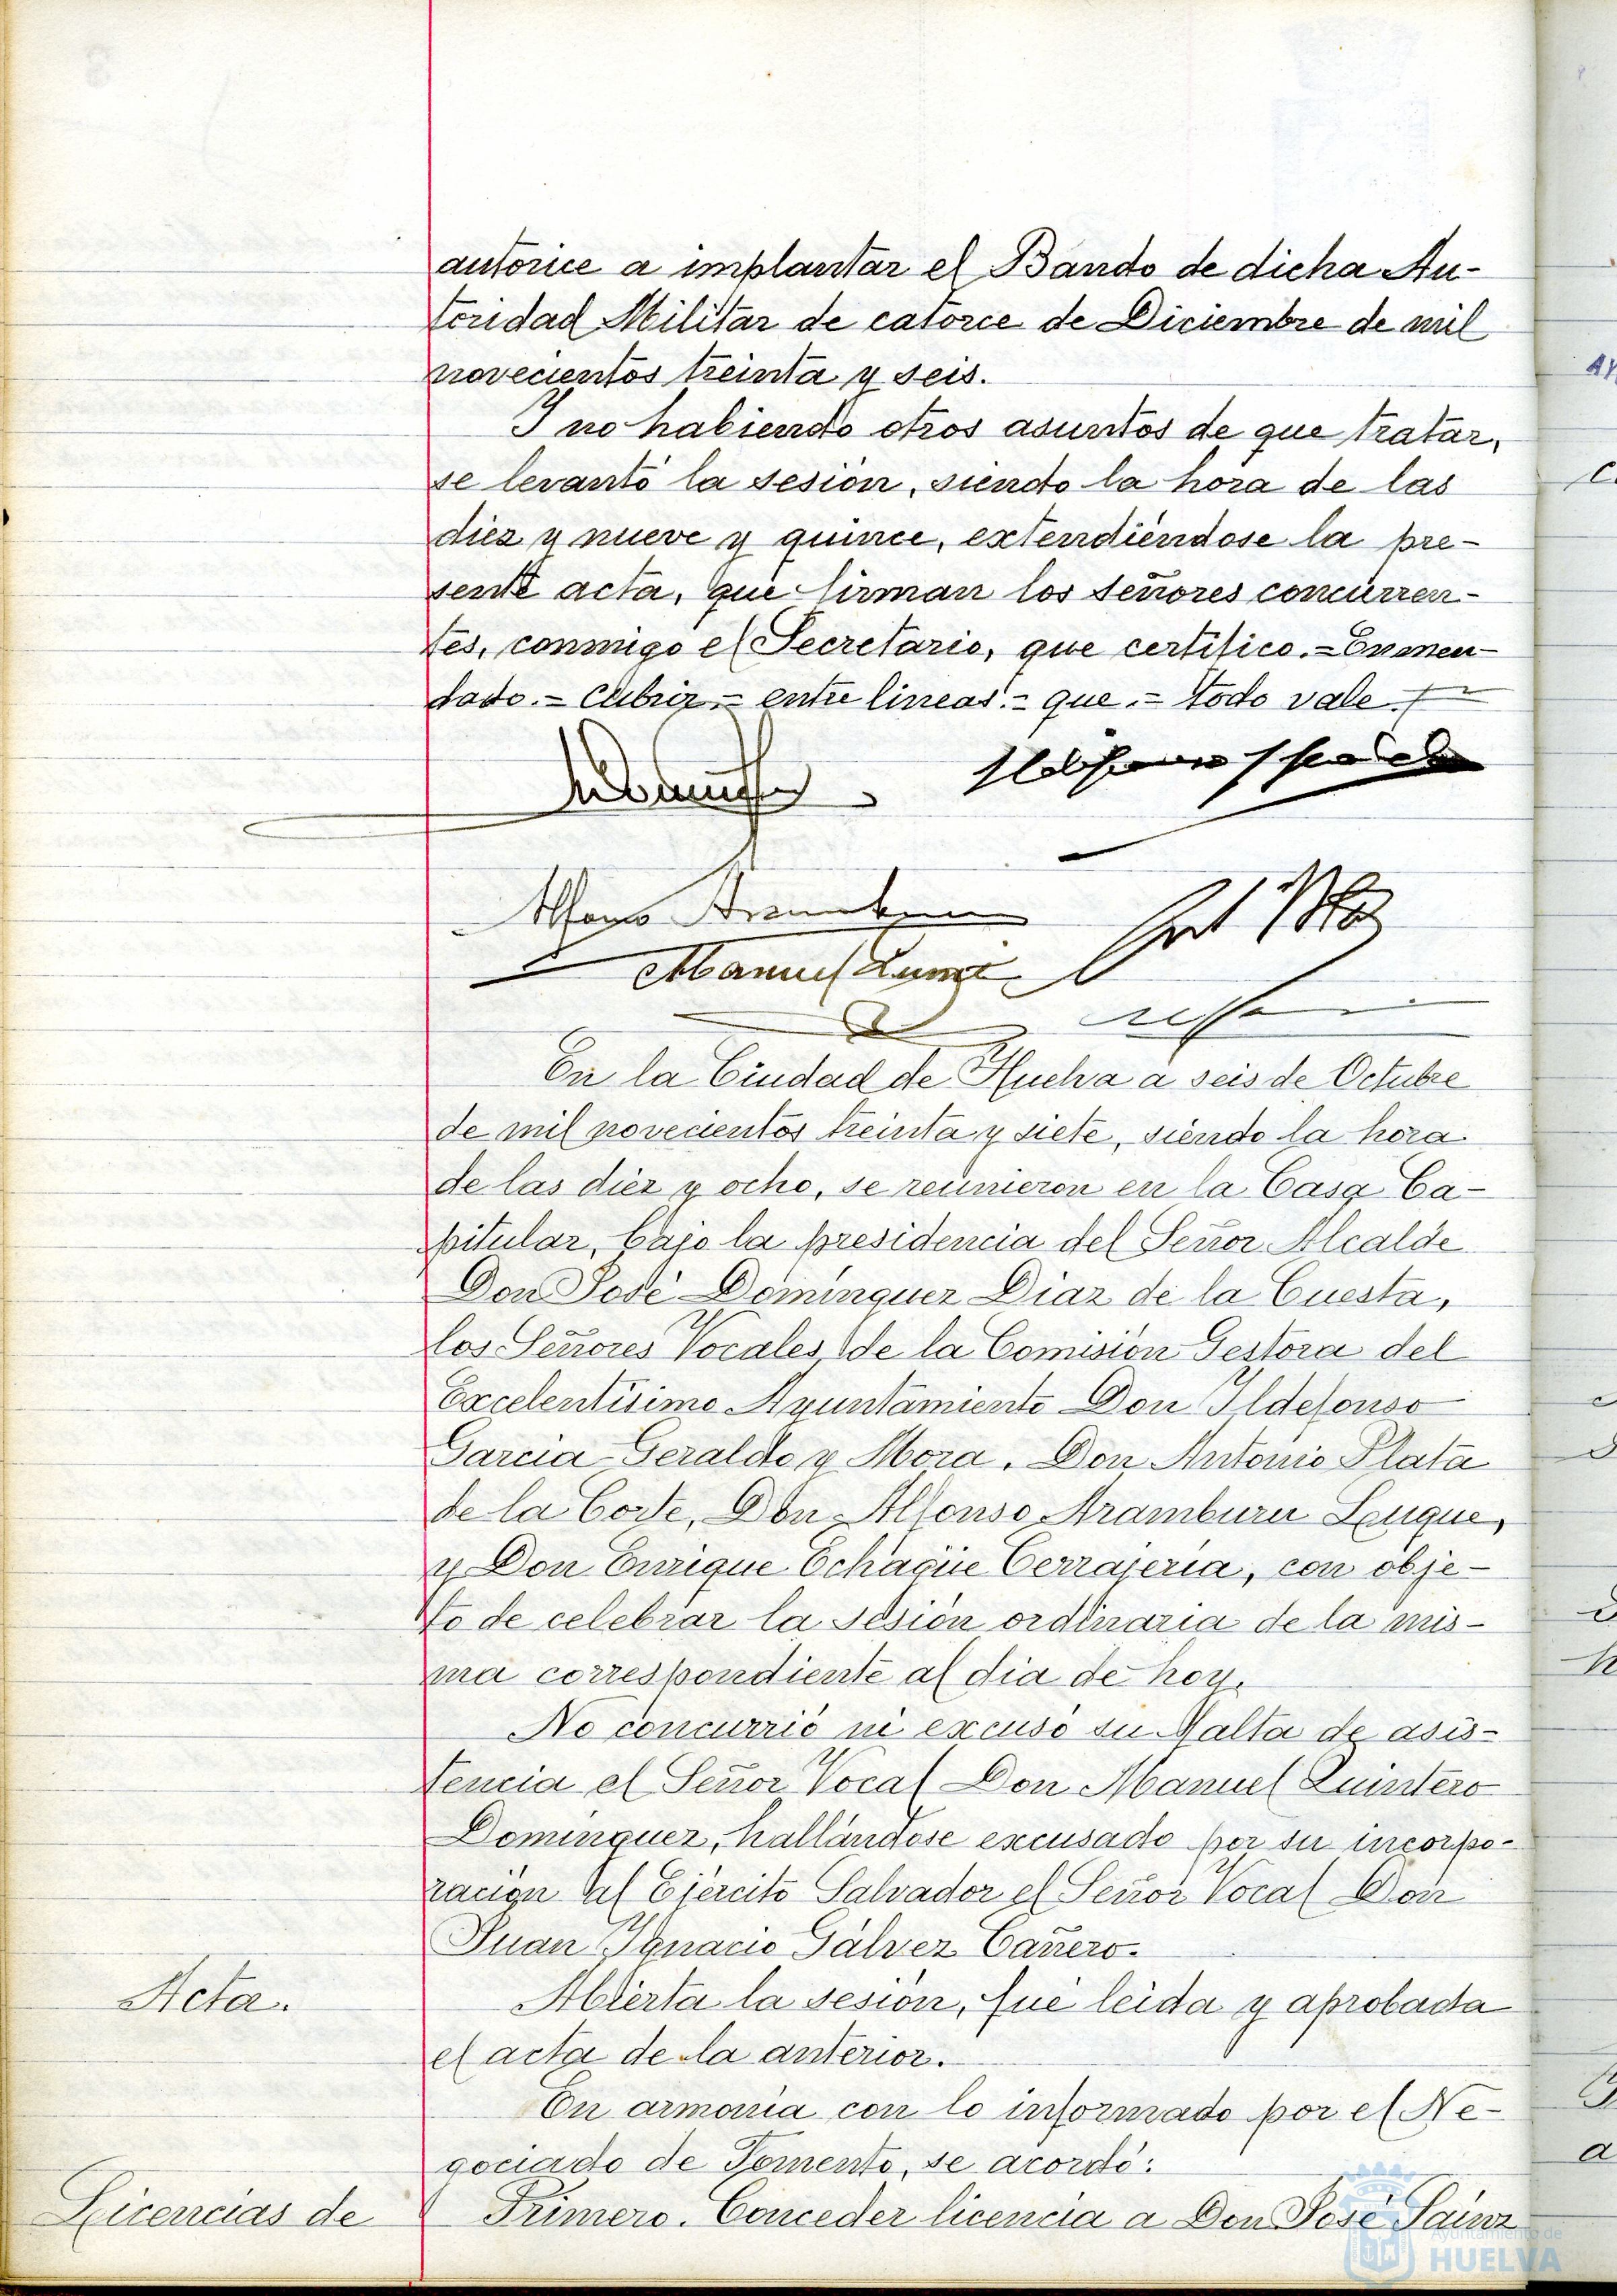 autorice a implantar el Bando de dicha Au-
toridad Militar de catorce de Diciembre de mil
novecientos treinta y seis.
Y no habiendo otros asuntos de que tratar,
se levantó la sesión, siendo la hora de las
diez y nueve y quince, extendiéndose la pre-
sente acta, que firman los señores concurren-
tes, conmigo el Secretario, que certifico.=Enmen-
dado.= cubrir.= entre lineas.= que.= todo vale
Alfonso Aramburu
Manuel
En la Ciudad de Huelva a seis de Octubre
de mil novecientos treinta y siete, siendo la hora
de las diez y ocho, se reunieron en la Casa Ca-
pitular, bajo la presidencia del Señor Alcalde
Don José Dominguez Diaz de la Cuesta,
los Señores Vocales de la Comisión Gestora del
Excelentísimo Ayuntamiento Don Ildefonso
Garcia-Geraldo y Mora, Don Antonio Plata
de la Corte, Don Alfonso Aramburu Luque,
y Don Enrique Echagüe Cerrajeria, con obje-
to de celebrar la sesión ordinaria de la mis-
ma correspondiente al dia de hoy.
No concurrió ni excusó su falta de asis-
tencia el Señor Vocal Don Manuel Quintero
Dominguez, hallándose excusado por su incorpo-
ración al Ejército Salvador el Señor Vocal Don
Juan Ignacio Gálvez Cañero.
Acta.
Abierta la sesión, fué leida y aprobada
el acta de la anterior.
En armonia con lo informado por el Ne-
gociado de Fomento, se acordó:
Licencias de
Primero. Conceder licencia a Don José Sainz
Ayuntamiento de
HUELVA